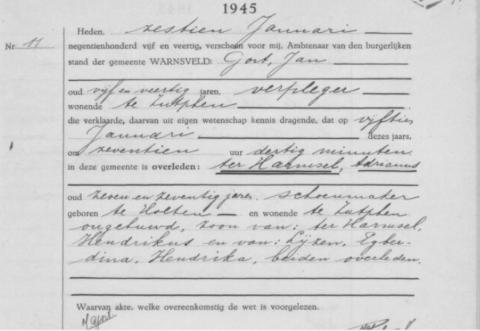 1945
Heden, zestien Januari
Nr. 11 negentienhonderd vijf en veertig, verscheen voor mij, Ambtenaar van den burgerlijken
stand der gemeente WARNSVELD: Gort, Jan
oud vijf en veertig jaren, verpleger
wonende te Zutphen
die verklaarde, daarvan uit eigen wetenschap kennis dragende, dat op vijftien
Januari dezes jaars,
om zeventien uur dertig minuten
in deze gemeente is overleden: ter Harmsel, Adrianus
oud zeven en zeventig jaren, schoenmaker
geboren te Holten en wonende te Zutphen
ongehuwd, zoon van: ter Harmsel,
Hendrikus en van: Lijzen, Egber-
dina, Hendrika, beiden overleden.
Waarvan akte, welke overeenkomstig de wet is voorgelezen.